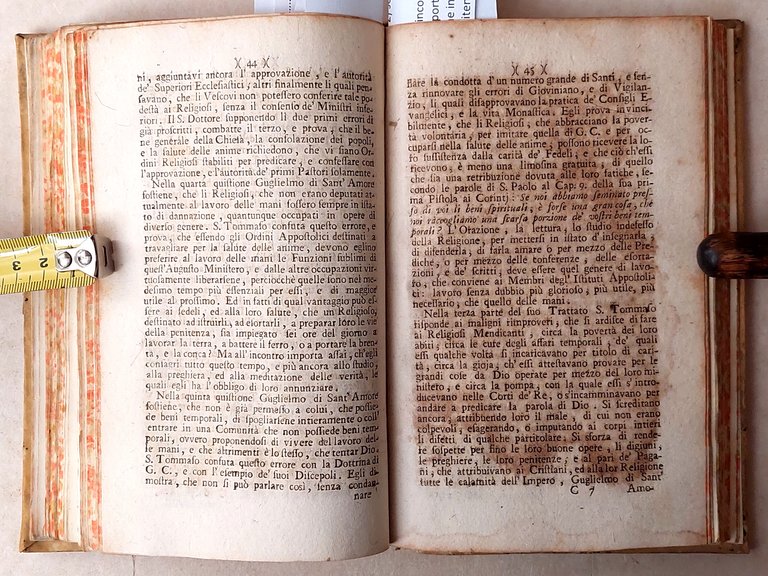 incor
port
be in
iteri
2
X 44 X
ni, aggiuntavi ancora l' approvazione, e l' autorità
de' Superiori Ecclesiastici; altri finalmente li quali pen-
savano, che li Vescovi non potessero conferire tale po-
destà ai Religiosi, senza il consenso de' Ministri infe-
riori. Il S. Dottore supponendo li due primi errori di
già proscritti, combatte il terzo, e prova, che il be-
ne generale della Chiesa, la consolazione dei popoli,
e la salute delle anime richiedono, che vi siano Or-
dini Religiosi stabiliti per predicare, e confessare con
l'approvazione, e l'autorità de' primi Pastori solamente.
Nella quarta quistione Guglielmo di Sant' Amore
sostiene, che li Religiosi, che non erano deputati at-
tualmente al lavoro delle mani fossero sempre in ista-
to di dannazione, quantunque occupati in opere di
diverso genere. S. Tommaso confuta questo errore, e
prova, che essendo gli Ordini Appostolici destinati a
travagliare per la salute delle anime, devono eglino
preferire al lavoro delle mani le Funzioni sublimi di
quest'Augusto Ministero, e dalle altre occupazioni vir-
tuosamente liberarsene, perciocchè quelle sono nel me-
desimo tempo più essenziali per essi, e di maggior
utile al prossimo. Ed in fatti di qual vantaggio può es-
sere ai fedeli, ed alla loro salute, che un Religioso,
destinato ad istruirli, ad esortarli, a preparar loro le vie
della penitenza, sia impiegato sei ore del giorno a
lavorar la terra, a battere il ferro, o a portare la bren-
ta, e la conca? Ma all' incontro importa assai, ch'egli
consagri tutto questo tempo, e più ancora allo studio,
alla preghiera, ed alla meditazione delle verità, le
quali egli ha l'obbligo di loro annunziare.
Nella quinta quistione Guglielmo di Sant' Amore
sostiene, che non è già permesso a colui, che possie-
de beni temporali, di spogliarsene intieramente o col
entrare in una Comunità che non possiede beni tem-
porali, ovvero proponendosi di vivere del lavoro del-
le mani, e che altrimenti è lo stesso, che tentar Dio.
S. Tommaso confuta questo errore con la Dottrina di
G. C., e con l'esempio de' suoi Discepoli. Egli di-
mostra, che non si può parlare così, senza condan-
nare
X 45 X
nare la condotta d'un numero grande di Santi, e sen-
za rinnovare gli errori di Gioviniano, e di Vigilan-
zio, li quali disapprovavano la pratica de' Consigli E-
vangelici, e la vita Monastica. Egli prova invinci-
bilmente, che li Religiosi, che abbracciano la pover-
tà volontaria, per imitare quella di G. C. e per oc-
cuparsi nella salute delle anime, possono ricevere la lo-
ro sussistenza dalla carità de' Fedeli; e che ciò ch'essi
ricevono, è meno una limosina gratuita, di quello
che sia una retribuzione dovuta alle loro fatiche, se-
condo le parole di S. Paolo al Cap. 9. della sua pri-
ma Pistola ai Corintj: Se noi abbiamo seminato pres-
so di voi li beni spirituali, è forse una gran cosa, che
noi raccogliamo una scarsa porzione de' vostri beni tem-
porali? L'Orazione, la lettura, lo studio indefesso
della Religione, per mettersi in istato d'insegnarla,
di difenderla; di farla amare o per mezzo delle Pre-
diche, o per mezzo delle conferenze, delle esorta-
zioni, e de' scritti, deve essere quel genere di lavo-
ro, che conviene ai Membri degl'Istituti Appostoli-
ci: lavoro senza dubbio più glorioso, più utile, più
necessario, che quello delle mani.
Nella terza parte del suo Trattato S. Tommaso
risponde ai maligni rimproveri, che si ardisce di fare
ai Religiosi Mendicanti, circa la povertà dei loro
abiti, circa le cure degli affari temporali, de' quali
essi qualche volta si incaricavano per titolo di cari-
tà, circa la gioja, ch' essi attestavano provare per le
grandi cose da Dio operate per mezzo del loro mi-
nistero, e circa la pompa, con la quale essi s' intro-
ducevano nelle Corti de' Re, o s'incamminavano per
andare a predicare la parola di Dio. Si screditano
ancora, attribuendo loro il male, di cui non erano
colpevoli, esagerando, o imputando ai corpi intieri
li difetti di qualche particolare. Si sforza di rende-
re sospette per fino le loro buone opere, li digiuni,
le preghiere, le loro penitenze; e al pari de' Paga-
ni, che attribuivano ai Cristiani, ed alla lor Religione
tutte le calamità dell' Impero, Guglielmo di Sant'
C 7 Amo-